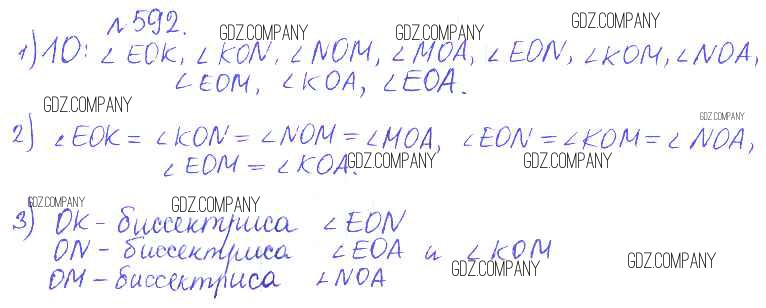 №592.
GDZ.COMPANY GDZ.COMPANY GDZ.COMPANY
1) 10: ∠EOK, ∠KON, ∠NOM, ∠MOA, ∠EON, ∠KOM, ∠NOA,
∠EOM, ∠KOA, ∠EOA.
GDZ.COMPANY GDZ.COMPANY
2) ∠EOK = ∠KON = ∠NOM = ∠MOA, ∠EON = ∠KOM = ∠NOA,
∠EOM = ∠KOA. GDZ.COMPANY GDZ.COMPANY
GDZ.COMPANY GDZ.COMPANY
3) OK - биссектриса ∠EON
ON - биссектриса ∠EOA и ∠KOM
OM - биссектриса ∠NOA GDZ.COMPANY GDZ.COMPANY